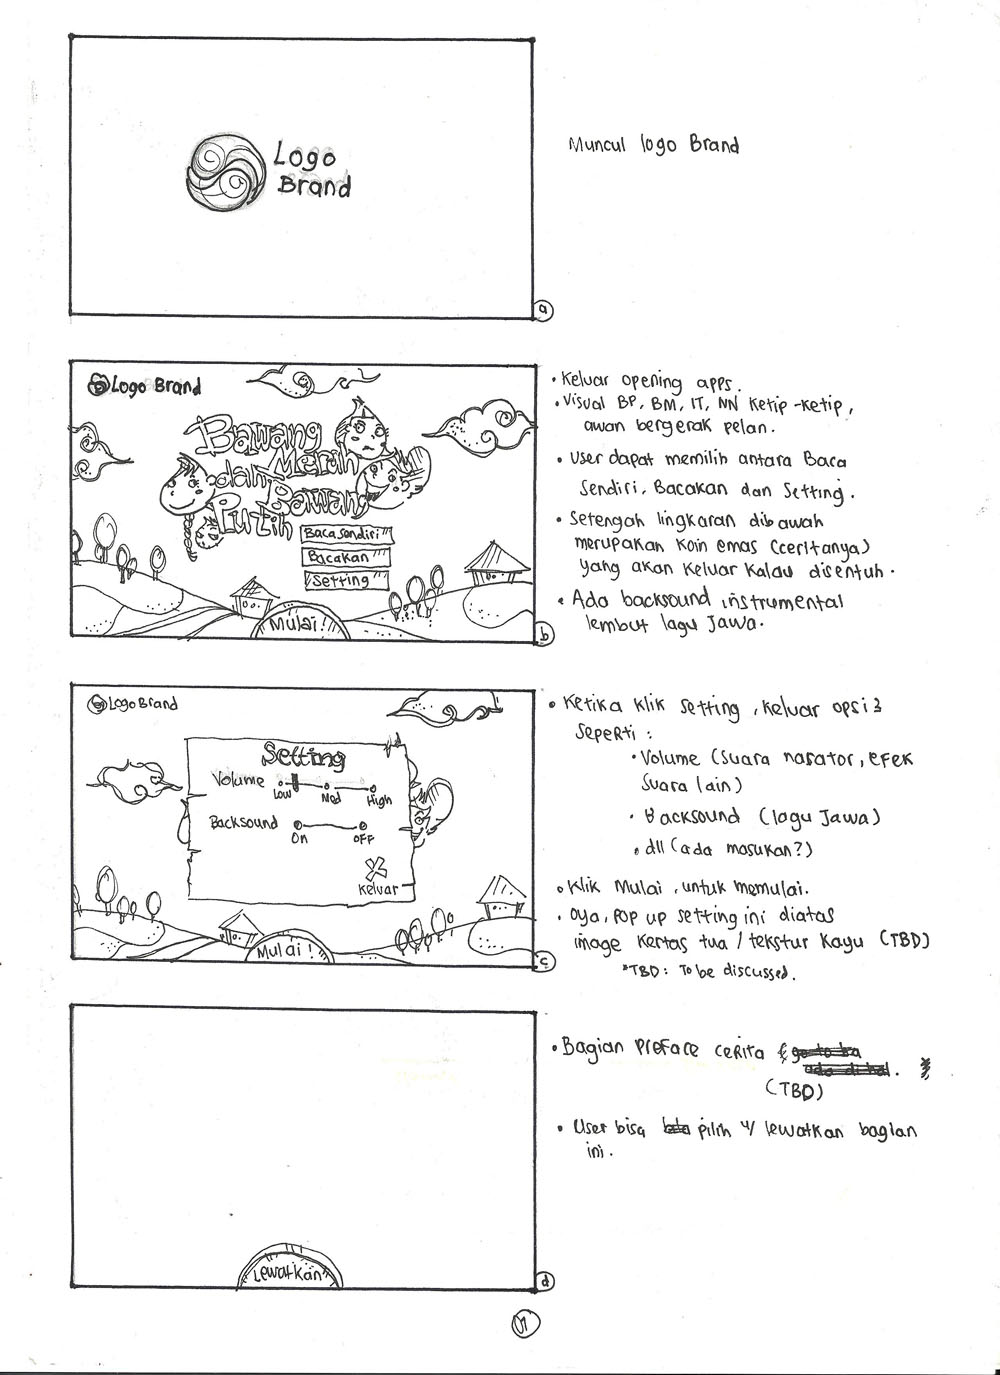 Logo
Brand
Muncul logo Brand
a
Logo Brand
Bawang
Merah
dan
Bawang
Putih
Baca sendiri
Bacakan
Setting
Mulai!
b
• Keluar opening apps.
• Visual BP, BM, IT, NN Ketip-ketip,
awan bergerak pelan.
• User dapat memilih antara Baca
Sendiri, Bacakan dan Setting.
• Setengah lingkaran dibawah
merupakan koin emas (ceritanya)
yang akan keluar kalau disentuh.
• Ada backsound instrumental
lembut lagu Jawa.
Logo Brand
Setting
Volume
Low Med High
Backsound
On OFF
Keluar
Mulai!
c
• Ketika klik setting, keluar opsi2
seperti:
• Volume (suara narator, efek
suara lain)
• Backsound (lagu Jawa)
• dll (ada masukan?)
• Klik Mulai, untuk memulai.
• Oya, pop up setting ini diatas
image kertas tua / tekstur kayu (TBD)
*TBD: To be discussed.
Lewatkan
d
• Bagian preface cerita
(TBD)
• User bisa pilih u/ lewatkan bagian
ini.
01